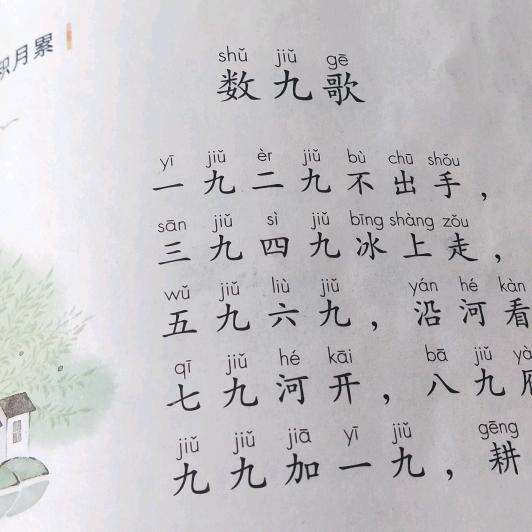 积月累
shǔ jiǔ gē
数九歌
yī jiǔ èr jiǔ bù chū shǒu
一九二九不出手，
sān jiǔ sì jiǔ bīng shàng zǒu
三九四九冰上走，
wǔ jiǔ liù jiǔ yán hé kàn
五九六九，沿河看
qī jiǔ hé kāi bā jiǔ yà
七九河开，八九雁
jiǔ jiǔ jiā yī jiǔ gēng
九九加一九，耕